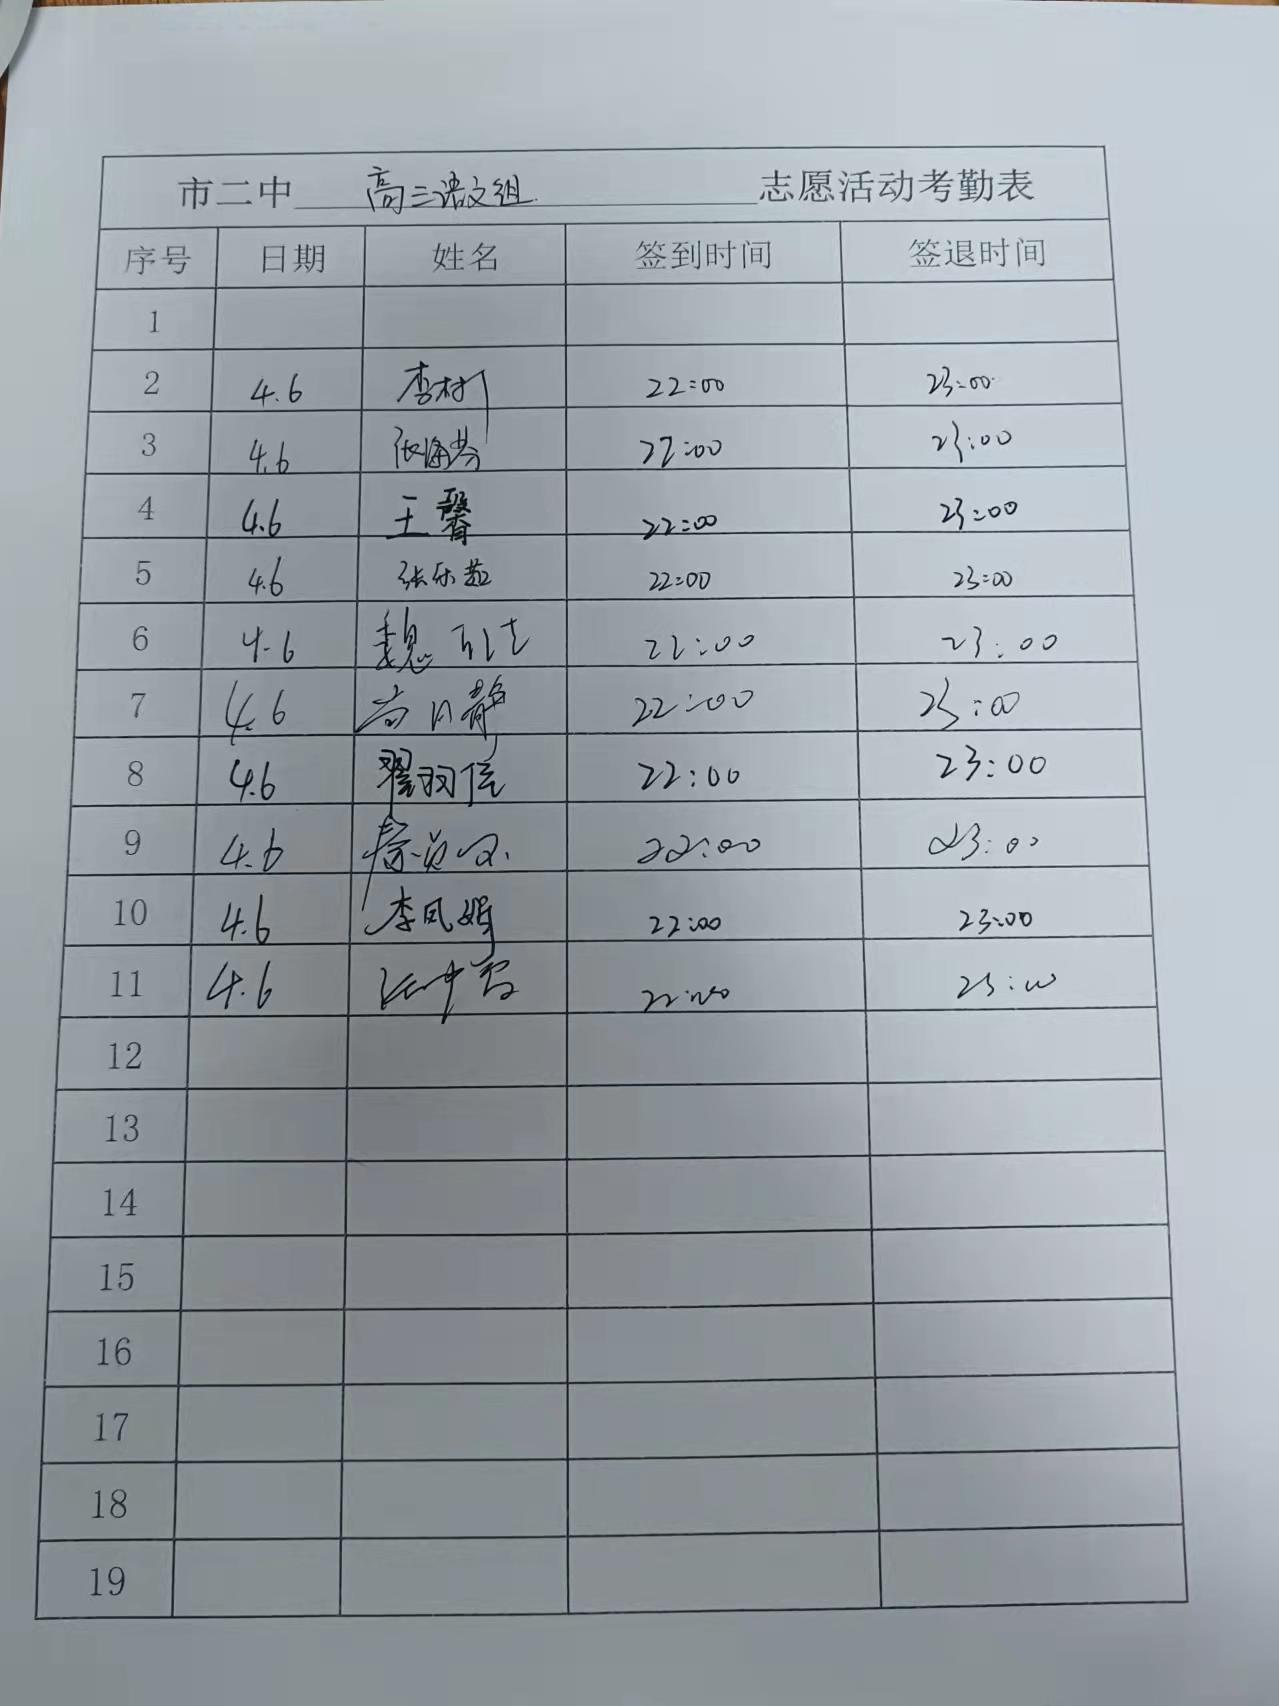 市二中 高三语文组 志愿活动考勤表
序号 日期 姓名 签到时间 签退时间
1
2 4.6 李村 22:00 23:00
3 4.6 张海芬 22:00 23:00
4 4.6 王馨 22:00 23:00
5 4.6 张乐 22:00 23:00
6 4.6 魏 22:00 23:00
7 4.6 22:00 23:00
8 4.6 翟羽佳 22:00 23:00
9 4.6 22:00 23:00
10 4.6 李凤娟 22:00 23:00
11 4.6 22:00 23:00
12
13
14
15
16
17
18
19